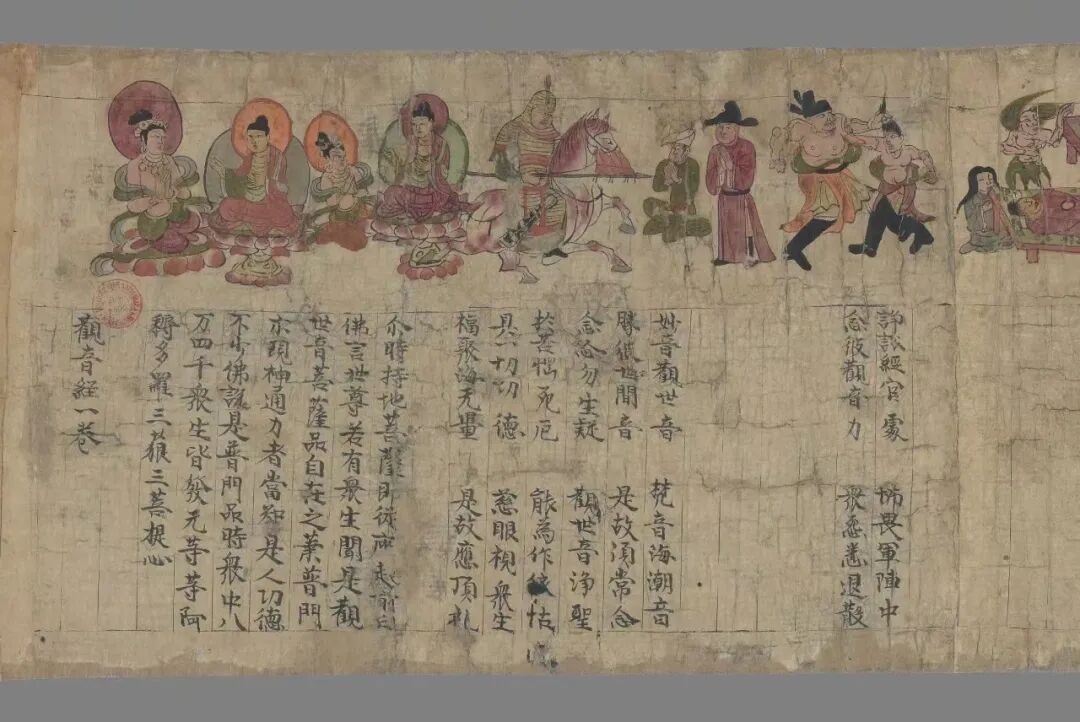 諍訟經官處 怖畏軍陣中
念彼觀音力 衆惌悉退散
妙音觀世音 梵音海潮音
勝彼世間音 是故須常念
念念勿生疑 觀世音淨聖
於苦惱死厄 能為作依怙
具一切功德 慈眼視衆生
福聚海无量 是故應頂礼
尒時持地菩薩即從座起前白
佛言世尊若有衆生聞是觀
世音菩薩品自在之業普門
示現神通力者當知是人功德
不少佛說是普門品時衆中八
万四千衆生皆發无等等阿
耨多羅三藐三菩提心
觀音經一卷